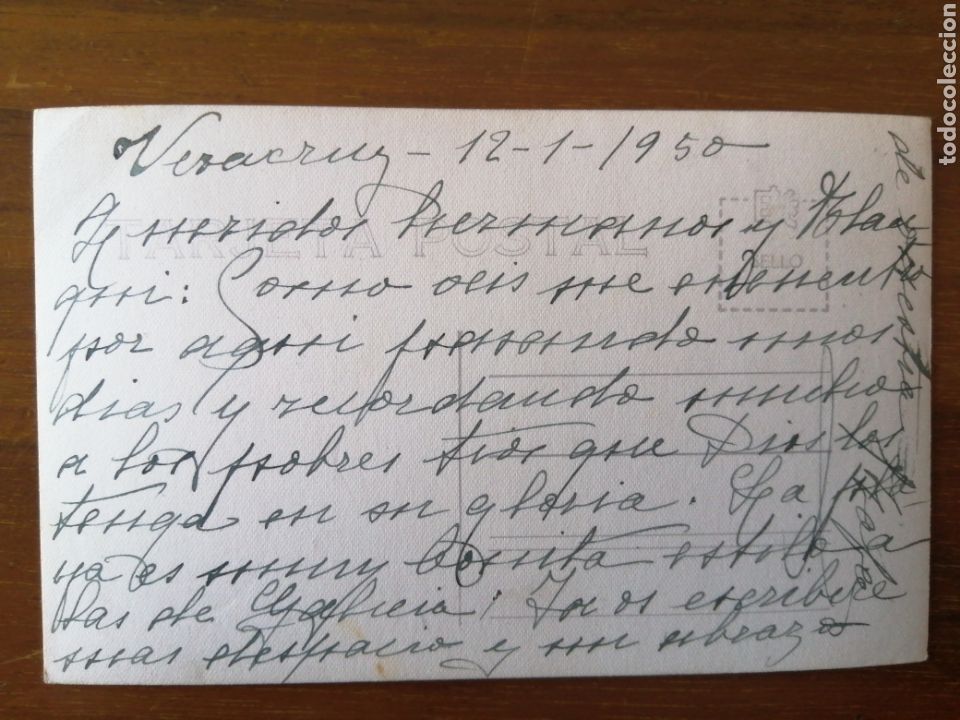 Veracruz - 12-1-1950
Queridos hermanos y Blan
qui: Como veis me encuentro
por aqui pasando unos
dias y recordando mucho
a los pobres tios que Dios los
tenga en su gloria. La pla
ya es muy bonita estilo
las de Galicia. Ya os escribire
mas despacio y un abrazo
de vuestra
TARJETA POSTAL
SELLO
todocoleccion